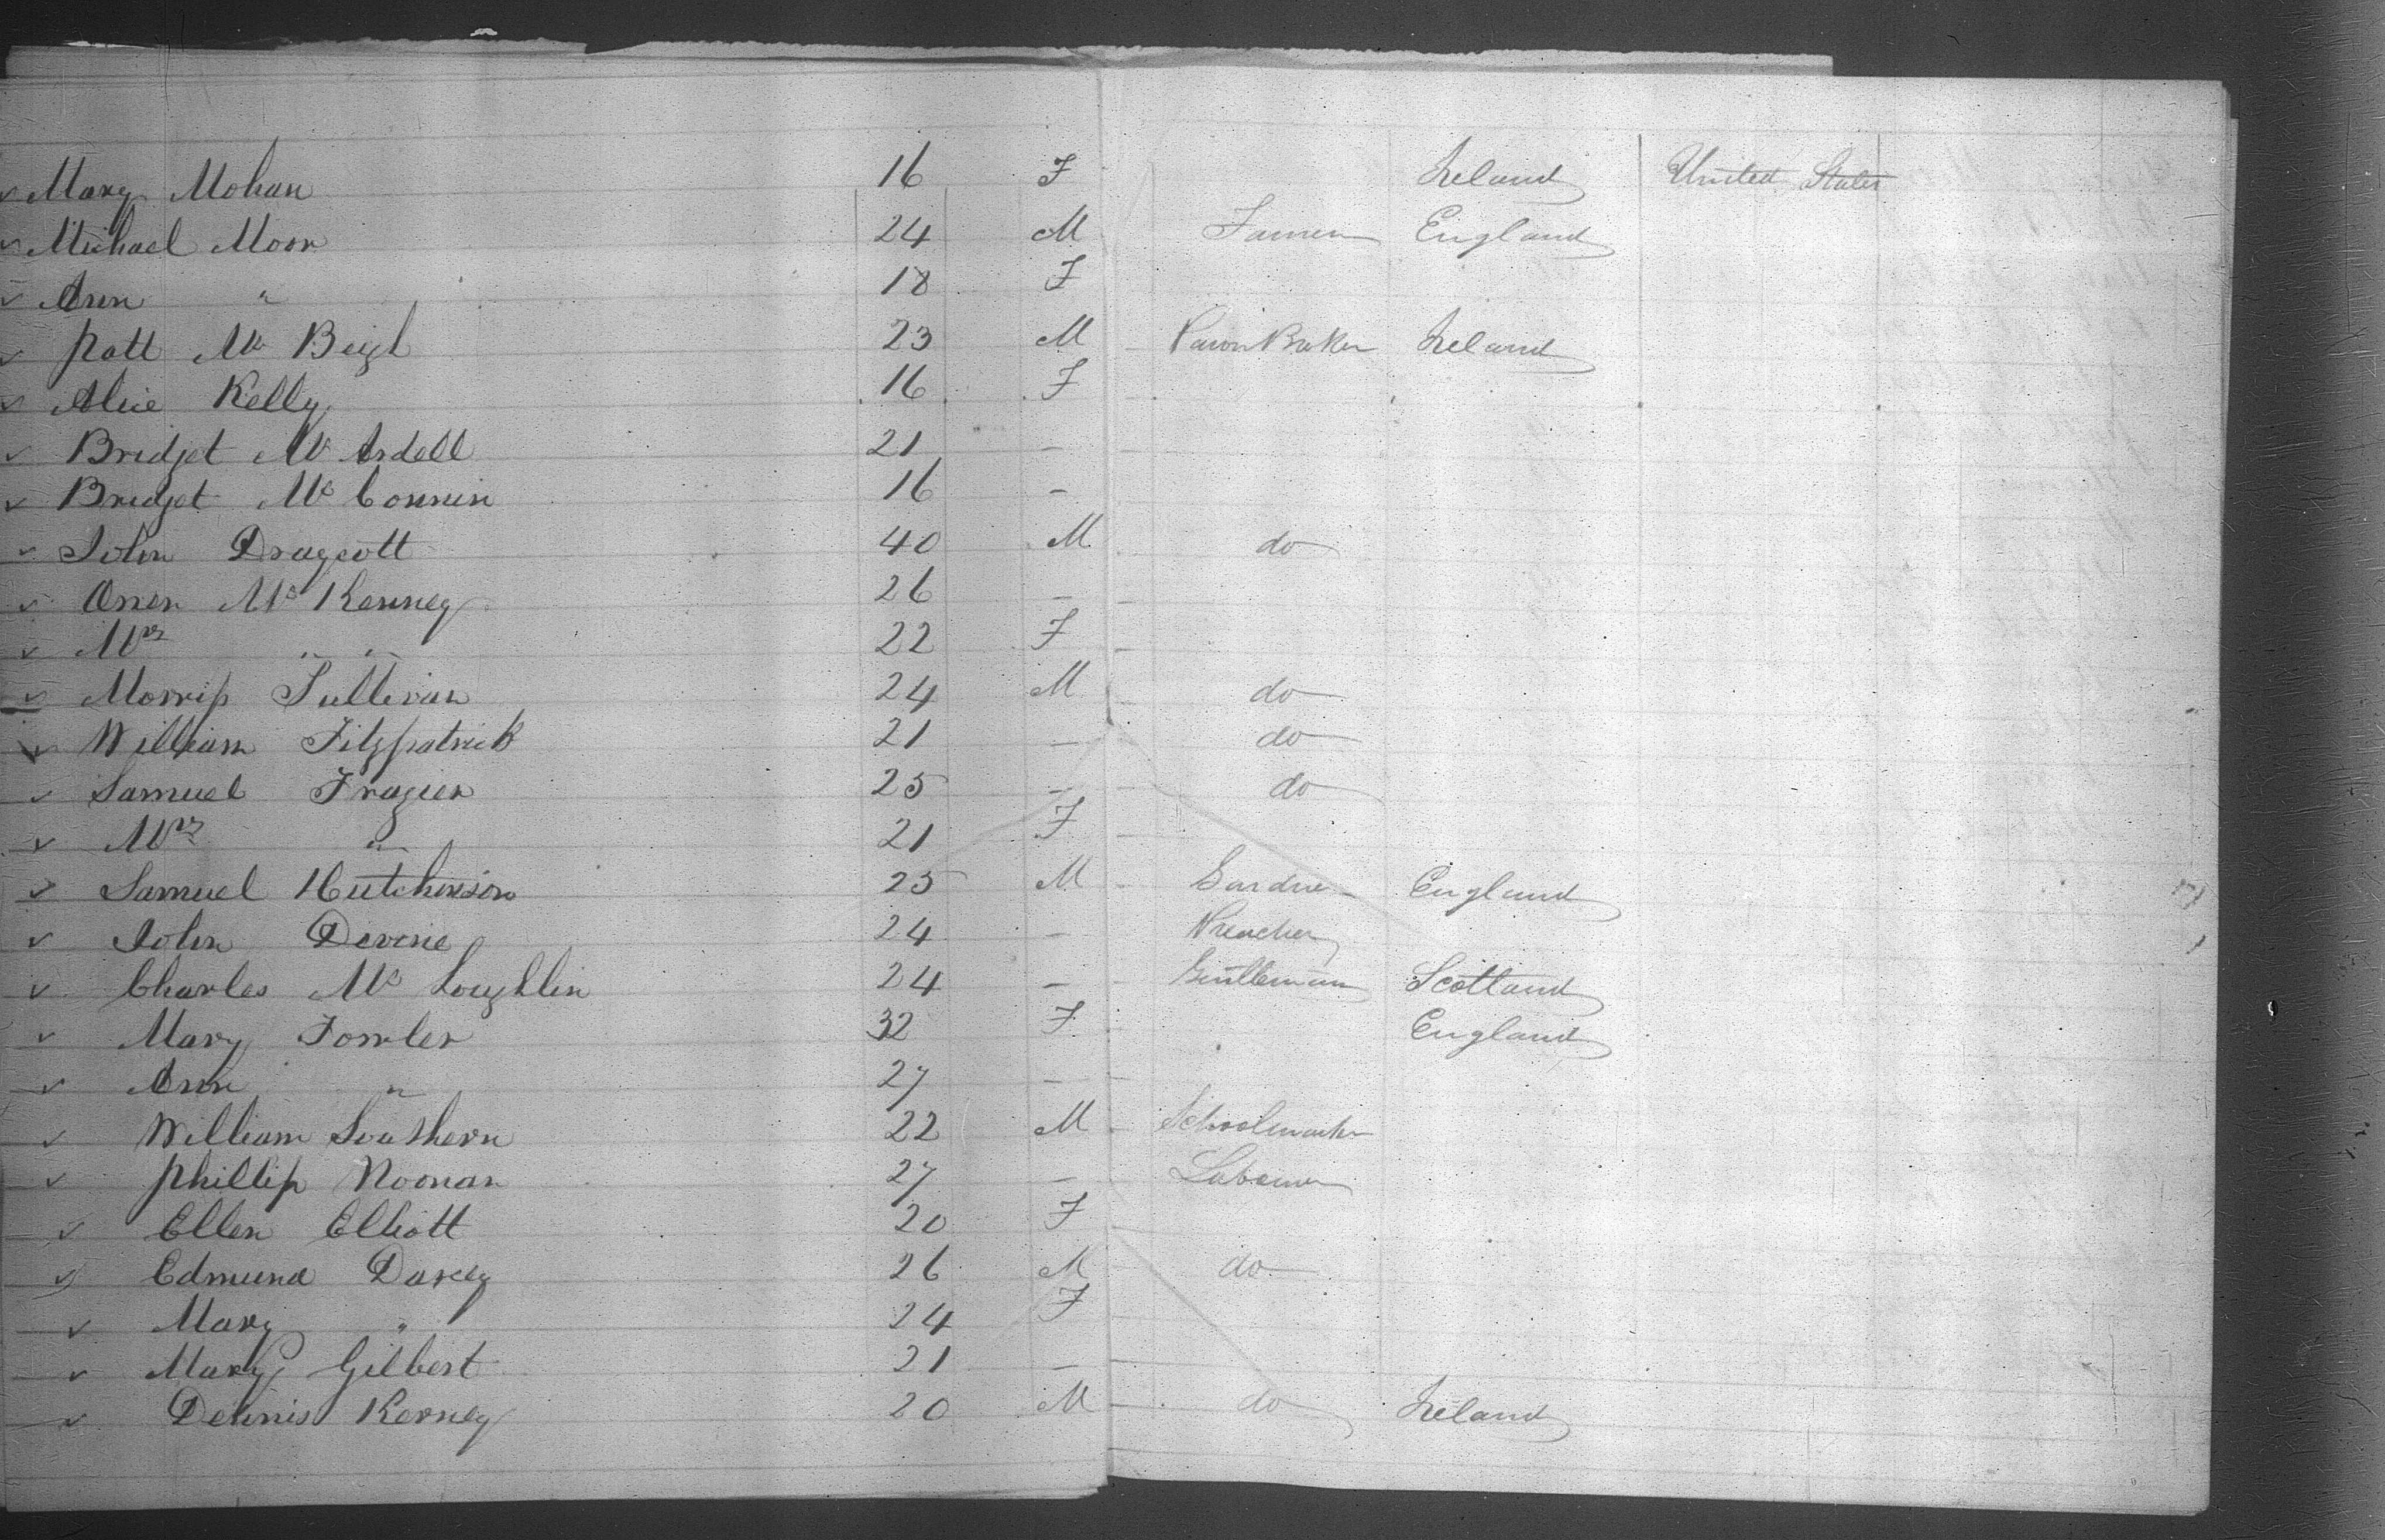 Mary Mohan 16 F Ireland United States
Michael Moor 24 M Farmer England
Ann " 18 F
Patt Mc Beigh 23 M Pawn Broker Ireland
Alice Kelly 16 F
Bridget Mc Ardell 21 —
Bridget Mc Connin 16 —
John Draycott 40 M do
Owen Mc Kenney 26 —
Mrs " " 22 F
Morriss Sullivan 24 M do
William Fitzpatrick 21 — do
Samuel Frazier 25 — do
Mrs " 21 F
Samuel Hutchinson 25 M Gardner England
John Devine 24 — Preacher
Charles Mc Loughlin 24 — Gentleman Scotland
Mary Fowler 32 F England
Ann " 27 —
William Southern 22 M Schoolmaster
Phillip Noonan 27 — Labourer
Ellen Elliott 20 F
Edmund Darcey 26 M do
Mary " 24 F
Mary Gilbert 21 —
Dennis Kerney 20 M do Ireland